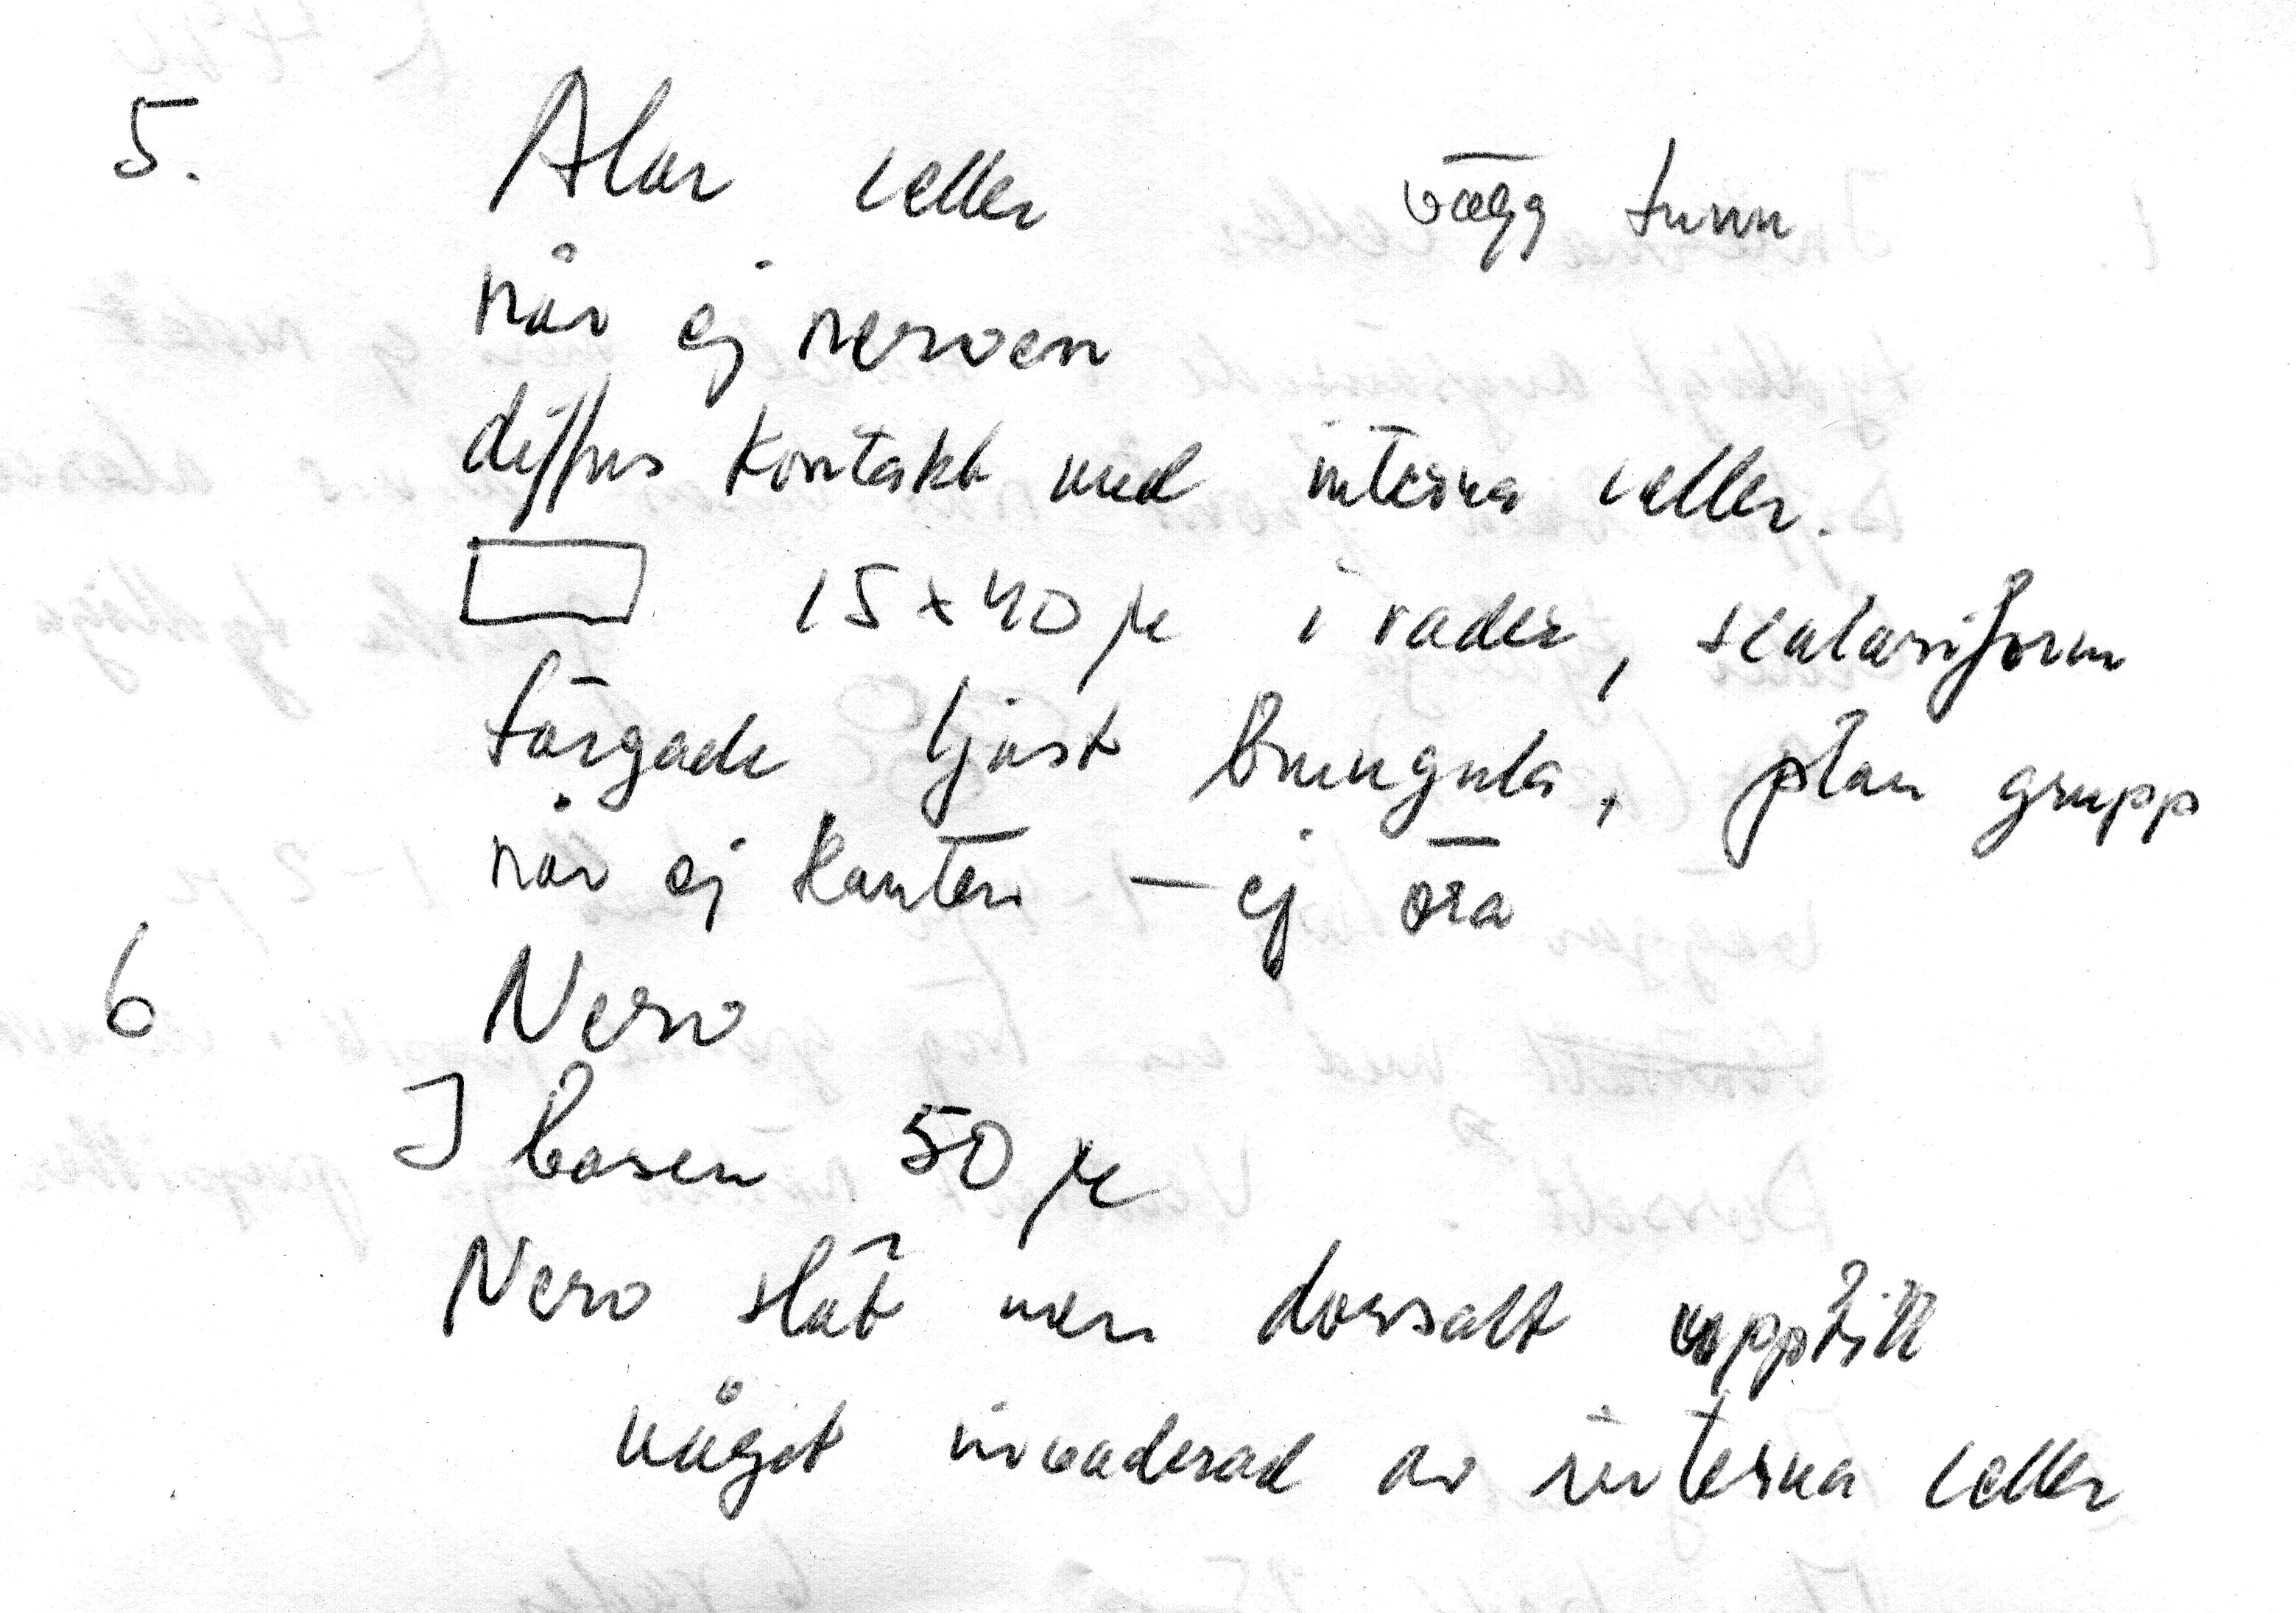 5. Alar celler vägg tunn
når ej nerven
diffus kontakt med interna celler.
15 x 40 µ i rader, scalariform
färgade ljust brungula, plan grupp
når ej kanten — ej öra
6 Nerv
I basen 50 µ
Nerv slät men dorsalt upptill
något invaderad av interna celler